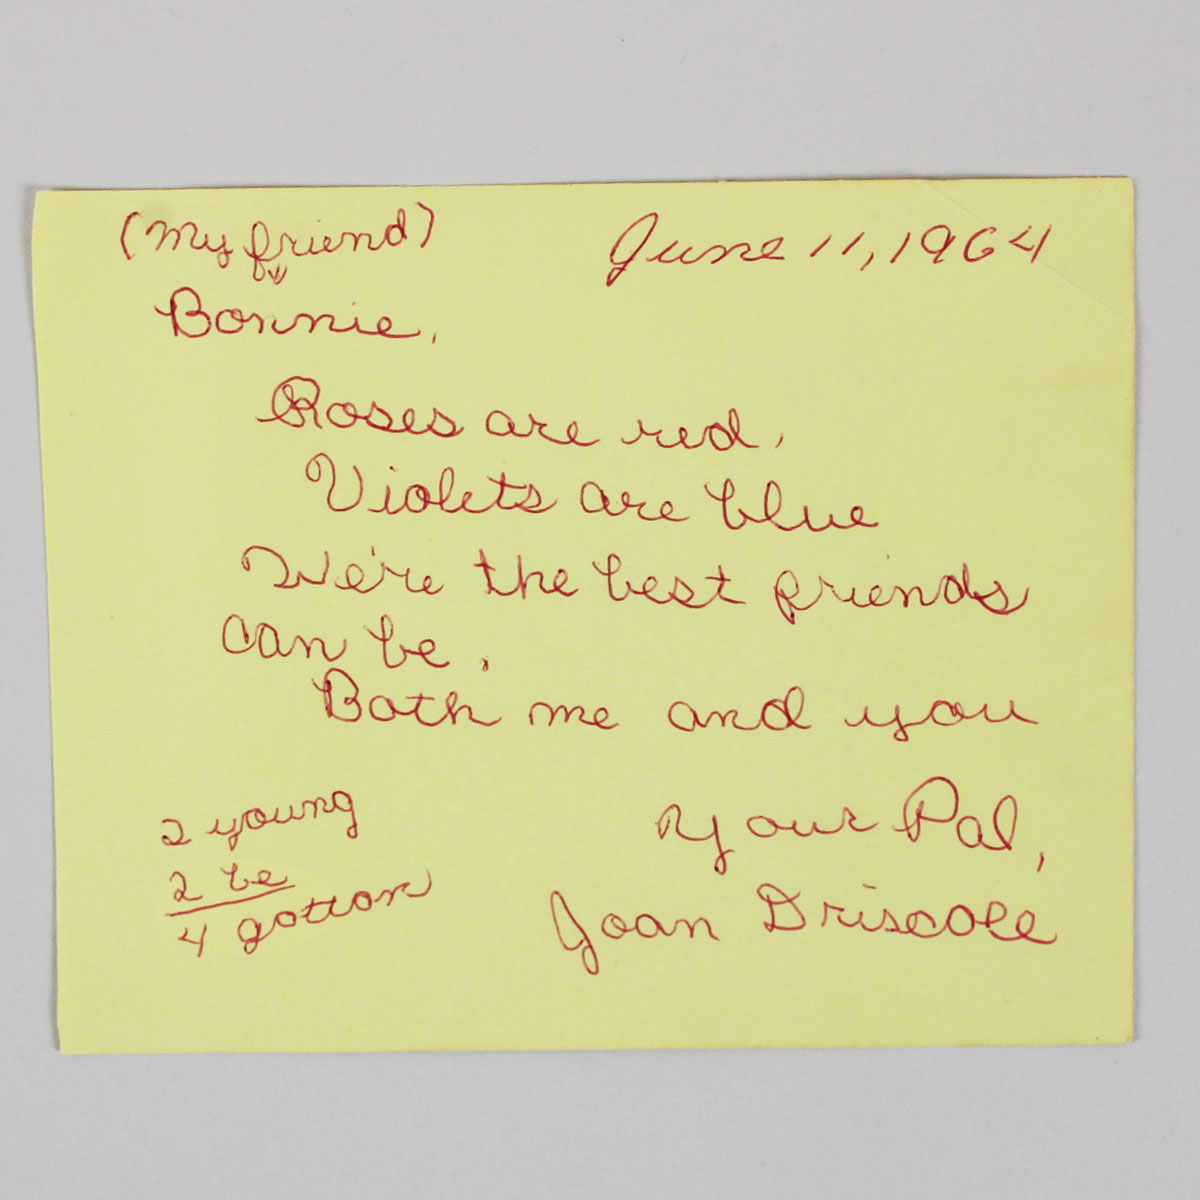 (My friend)
June 11, 1964
Bonnie,
Roses are red,
Violets are blue
We're the best friends
can be,
Both me and you
Your Pal,
Joan Driscoll
2 young
2 be
4 gotton